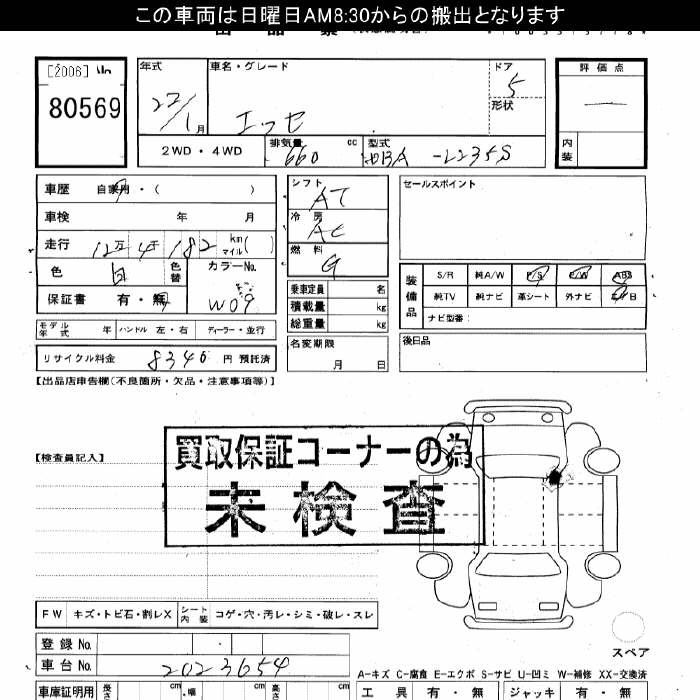 この車両は日曜日AM8:30からの搬出となります
[2006]
80569
年式
22/1月
車名・グレード
エッセ
ドア
5
形状
評価点
内装
2WD・4WD
排気量 660 cc
型式
L235S
車歴 自家用・( )
車検 年 月
走行 12万4千182 km マイル( )
色 白 色替
カラーNo.
W09
保証書 有・無
モデル年式 年 ハンドル 左・右 ディーラー・並行
リサイクル料金 8340 円 預託済
シフト
AT
冷房
AC
燃料
G
乗車定員 名
積載量 kg
総重量 kg
名変期限
月 日
セールスポイント
装備品
S/R 純A/W P/S P/W ABS
純TV 純ナビ 革シート 外ナビ エアB
ナビ型番:
後日品
【出品店申告欄(不良箇所・欠品・注意事項等)】
【検査員記入】
買取保証コーナーの為
未検査
FW キズ・トビ石・割レX シート内装 コゲ・穴・汚レ・シミ・破レ・スレ
登録No.
車台No. 2023654
スペア
A-キズ C-腐食 E-エクボ S-サビ U-凹ミ W-補修 XX-交換済
車庫証明用 長さ cm 幅 cm 高さ cm
工具 有・無 ジャッキ 有・無